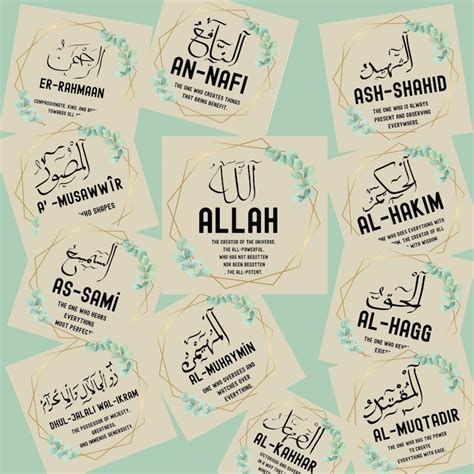 الرَّحْمٰنُ
ER-RAHMAAN
COMPASSIONATE, KIND, AND
TOWARDS ALL
النَّافِعُ
AN-NAFI
THE ONE WHO CREATES THINGS
THAT BRING BENEFIT.
الشَّهِيدُ
ASH-SHAHID
THE ONE WHO IS ALWAYS
PRESENT AND OBSERVING
EVERYWHERE.
الْمُصَوِّرُ
A' -MUSAWWÎR
WHO SHAPES
اللّٰه
ALLAH
THE CREATOR OF THE UNIVERSE,
THE ALL-POWERFUL.
WHO HAS NOT BEGOTTEN
NOR BEEN BEGOTTEN
THE ALL-POTENT.
الْحَكِيمُ
AL-HAKIM
WHO DOES EVERYTHING WITH
THE CREATOR OF ALL
WITH WISDOM.
السَّمِيعُ
AS-SAMİ
THE ONE WHO HEARS
EVERYTHING
MOST PERFECTLY
الْحَقُّ
AL-HAGG
THE ONE WHO
الْمُهَيْمِنُ
AL-MUHAYMİN
THE ONE WHO OVERSEES AND
WATCHES OVER
EVERYTHING.
ذُو الْجَلَالِ وَالْإِكْرَامِ
DHUL-JALALI WAL-IKRAM
THE POSSESSOR OF MAJESTY,
GREATNESS,
AND IMMENSE GENEROSITY.
الْقَهَّارُ
AL-KAHHAR
الْمُقْتَدِرُ
AL-MUQTADIR
THE ONE WHO HAS THE POWER
TO CREATE
EVERYTHING WITH EASE.